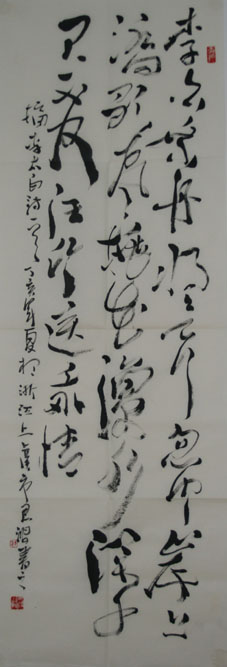 李白乘舟将欲行忽闻岸上
踏歌声桃花潭水深千
尺不及汪伦送我情
摘李太白诗一首丁亥年夏于浙江上虞市书之